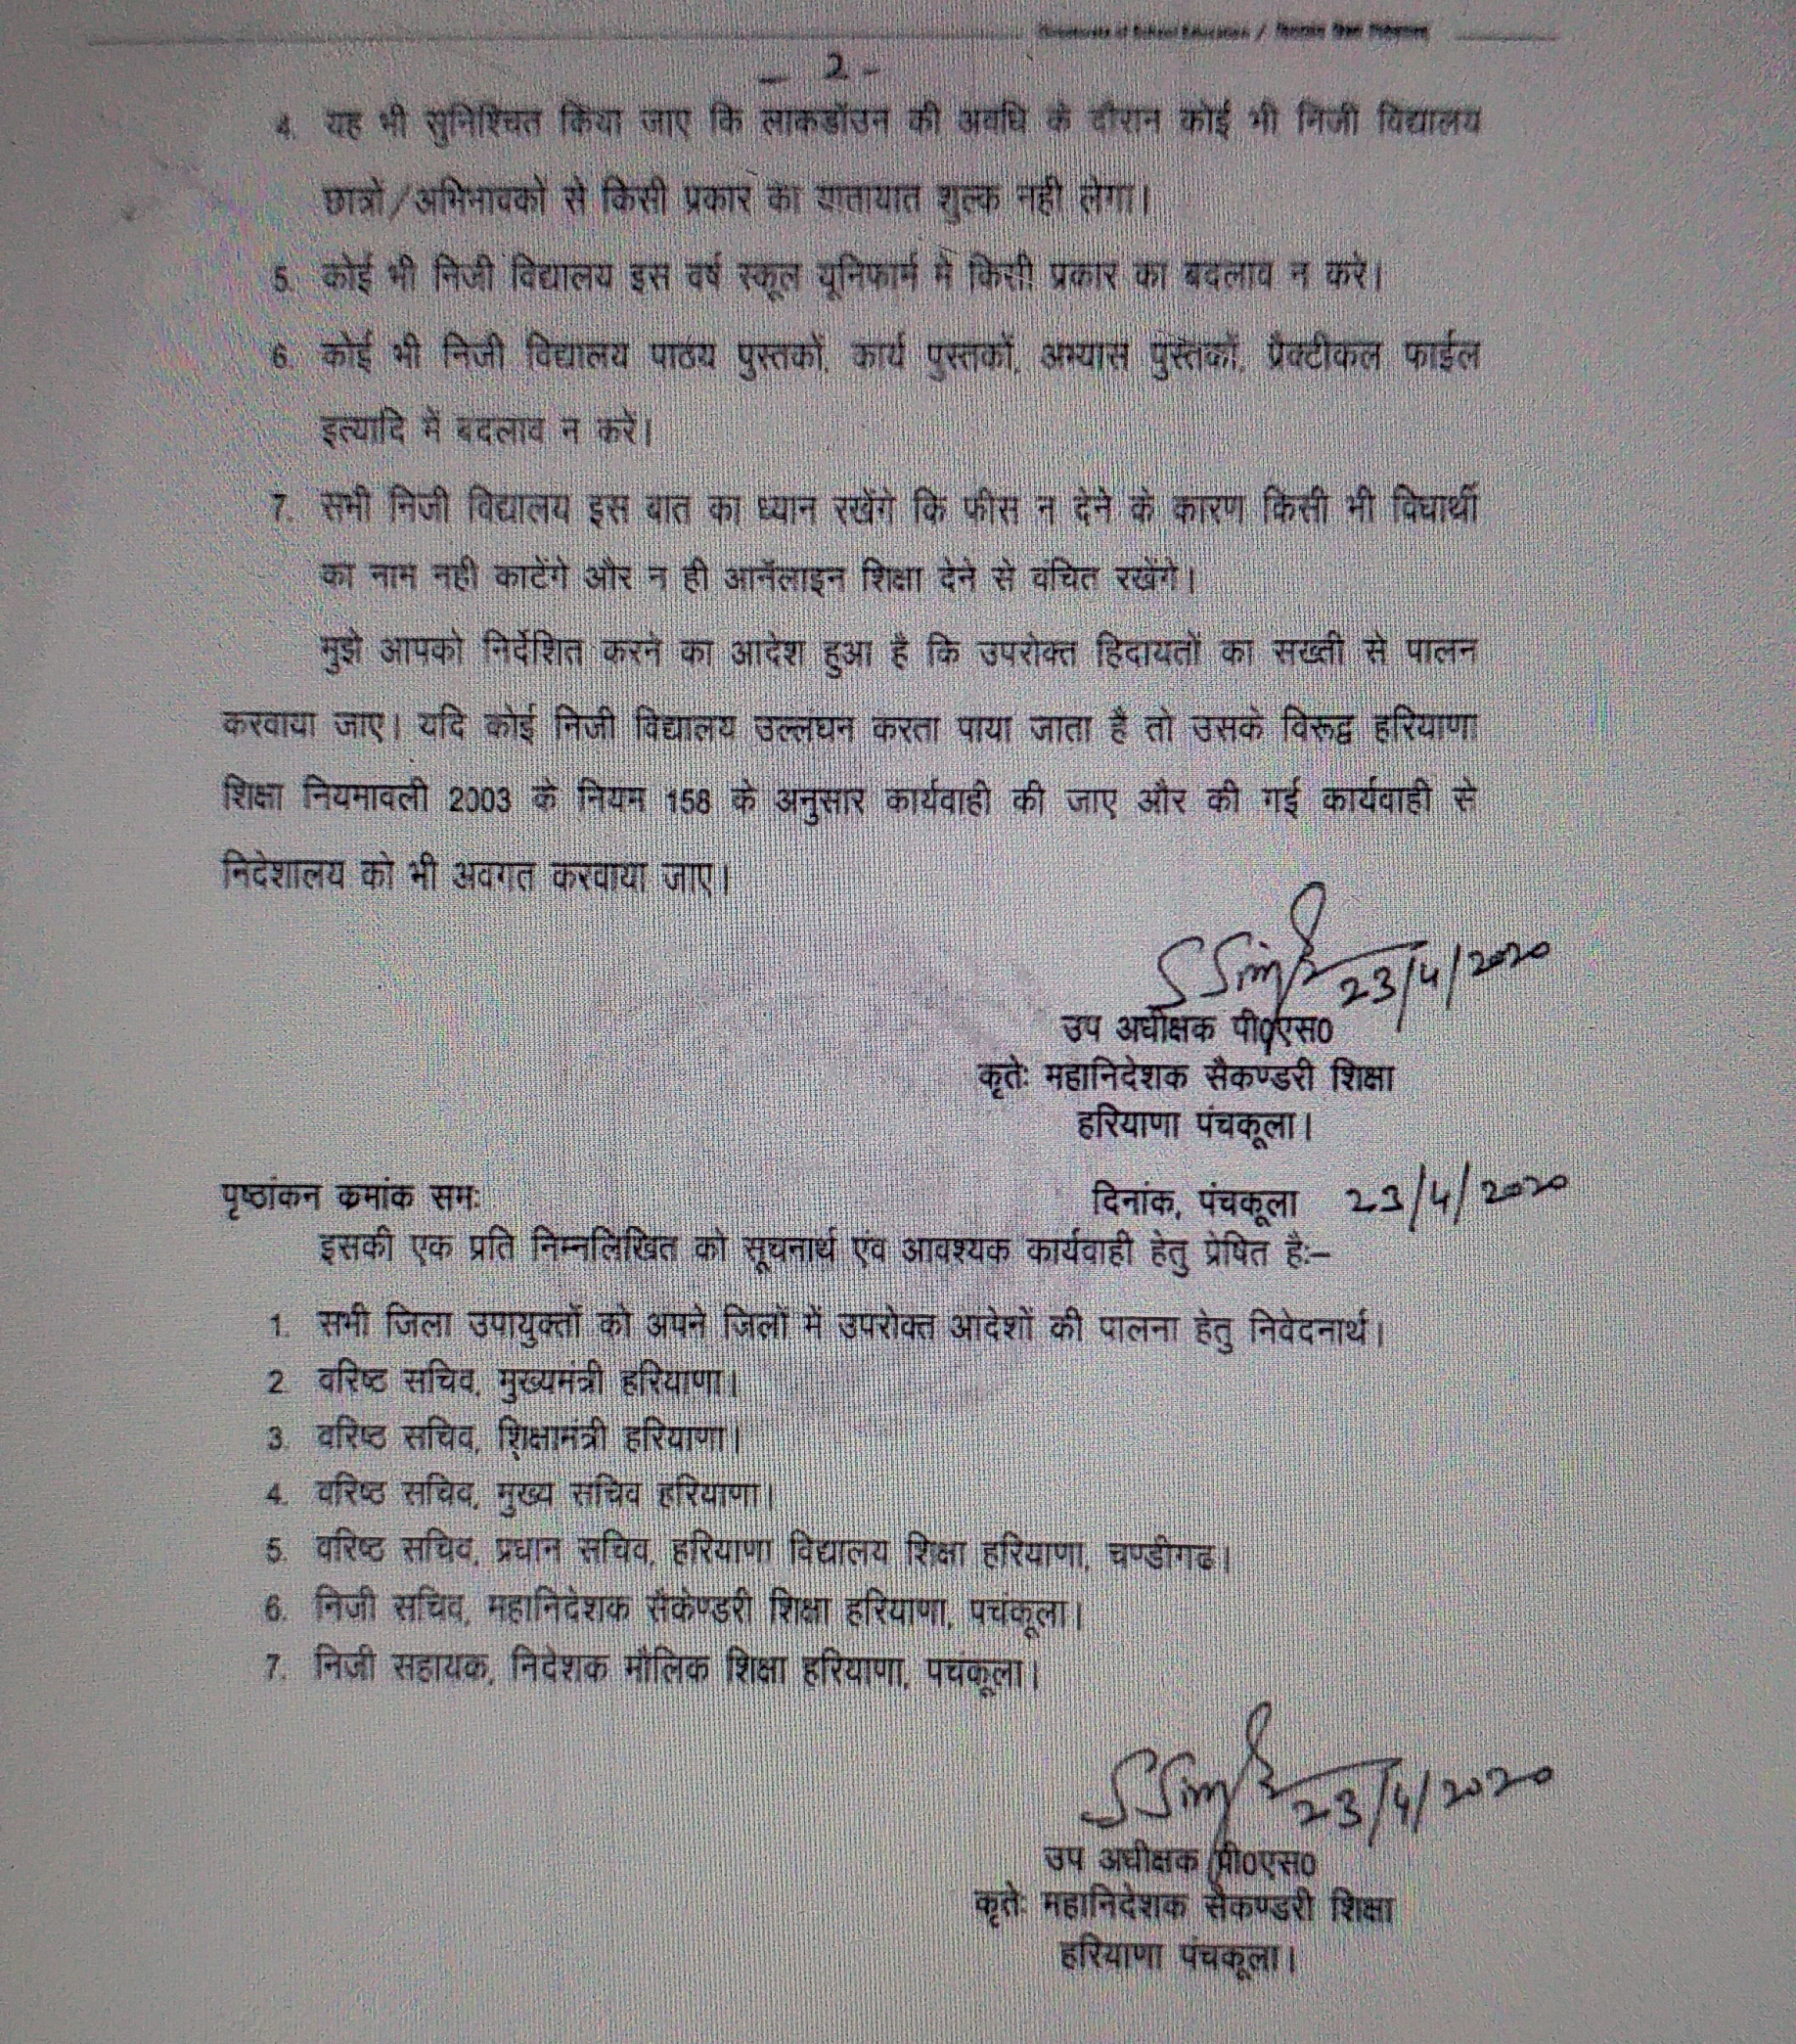 - 2 -
4. यह भी सुनिश्चित किया जाए कि लाकडॉउन की अवधि के दौरान कोई भी निजी विद्यालय
छात्रों/अभिभावकों से किसी प्रकार का यातायात शुल्क नही लेगा।
5. कोई भी निजी विद्यालय इस वर्ष स्कूल यूनिफार्म में किसी प्रकार का बदलाव न करे।
6. कोई भी निजी विद्यालय पाठय पुस्तकों, कार्य पुस्तकों, अभ्यास पुस्तकों, प्रैक्टीकल फाईल
इत्यादि में बदलाव न करें।
7. सभी निजी विद्यालय इस बात का ध्यान रखेंगे कि फीस न देने के कारण किसी भी विधार्थी
का नाम नही काटेंगे और न ही आनॅलाइन शिक्षा देने से वंचित रखेंगे।
मुझे आपको निर्देशित करने का आदेश हुआ है कि उपरोक्त हिदायतों का सख्ती से पालन
करवाया जाए। यदि कोई निजी विद्यालय उल्लंघन करता पाया जाता है तो उसके विरूद्व हरियाणा
शिक्षा नियमावली 2003 के नियम 158 के अनुसार कार्यवाही की जाए और की गई कार्यवाही से
निदेशालय को भी अवगत करवाया जाए।
S Singh 23/4/2020
उप अधीक्षक पी0एस0
कृतेः महानिदेशक सैकण्डरी शिक्षा
हरियाणा पंचकूला।
पृष्ठांकन क्रमांक समः दिनांक, पंचकूला 23/4/2020
इसकी एक प्रति निम्नलिखित को सूचनार्थ एंव आवश्यक कार्यवाही हेतु प्रेषित हैः–
1. सभी जिला उपायुक्तों को अपने जिलों में उपरोक्त आदेशों की पालना हेतु निवेदनार्थ।
2. वरिष्ठ सचिव, मुख्यमंत्री हरियाणा।
3. वरिष्ठ सचिव, शिक्षामंत्री हरियाणा।
4. वरिष्ठ सचिव, मुख्य सचिव हरियाणा।
5. वरिष्ठ सचिव, प्रधान सचिव, हरियाणा विद्यालय शिक्षा हरियाणा, चण्डीगढ।
6. निजी सचिव, महानिदेशक सैकेण्डरी शिक्षा हरियाणा, पचंकूला।
7. निजी सहायक, निदेशक मौलिक शिक्षा हरियाणा, पचंकूला।
S Singh 23/4/2020
उप अधीक्षक पी0एस0
कृतेः महानिदेशक सैकण्डरी शिक्षा
हरियाणा पंचकूला।